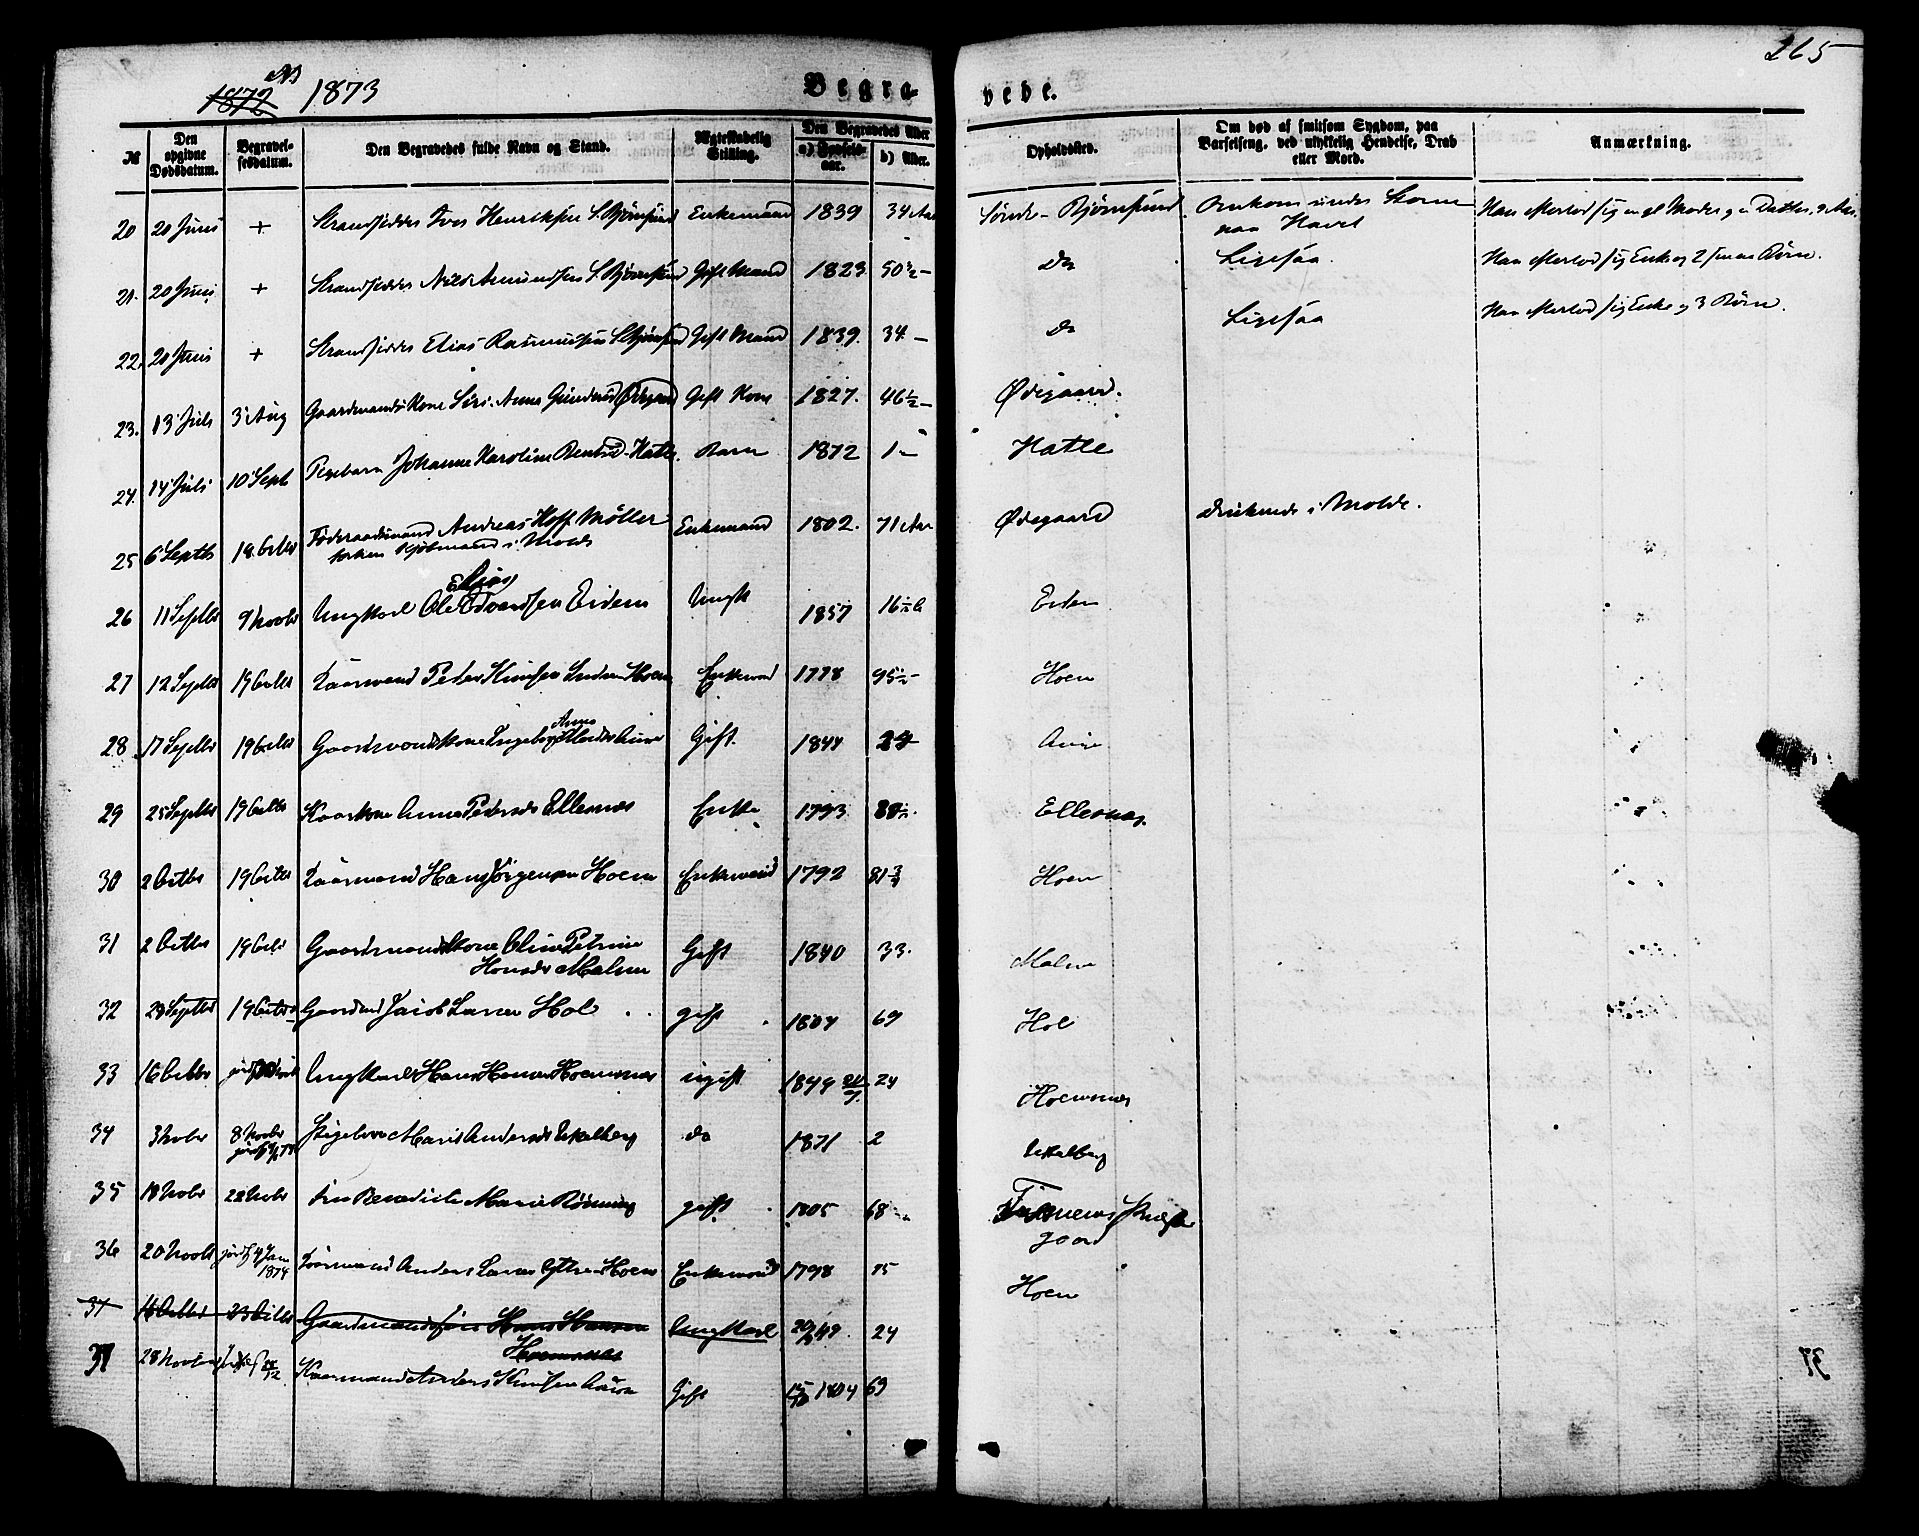 265
1872 1873
Begra- vede.
№ Den opgivne Dødsdatum. Begravelsesdatum. Den Begravedes fulde Navn og Stand. Ægteskabelig Stilling. Den Begravedes Alder a) Fødselsaar. b) Alder. Opholdssted. Om død af smitsom Sygdom, paa Barselseng, ved ulykkelig Hendelse, Drab eller Mord. Anmærkning.
20 20 Juni + Strandsidder Iver Henriksen S. Bjørnsund Enkemand 1839 34 Aar Søndre Bjørnsund Omkom under Storm
paa Havet
21. 20 Juni + Strandsidder Nils Amundsen S. Bjørnsund Gift Mand 1823 50 Do Ligesaa Han efterlod sig Enke og 2 smaa Børn.
22. 20 Juni + Strandsidder Elias Rasmussen S. Bjørnsund Gift Mand 1839. 34 - Do Ligesaa Han efterlod sig Enke og 3 Børn.
23. 13 Juli 3 Aug Gaardmands Kone Siri Anna Ødegaard Gift Kone 1827. 46½ - Ødegaard.
24. 14 Juli 10 Sept Pigebarn Johanne Karoline Hatle. Barn 1872 1 - Hatle
25 6 Septbr 18 Octbr Føderaadsmand Andreas Hoff Møller Enkemand 1802. 71 Aar Ødegaard Druknede i Molde.
forhen Kjøbmand i Molde
Elias
26 11 Septbr 9 Novbr Ungkarl Ole Edvardsen Eidem Ungk 1857 16 Eidem
27 12 Septbr 19 Octbr Kaarmand Peder Knudsen Indre Hoem Enkemand 1778 95 Hoem
Anna
28 17 Septbr 19 Octbr Gaardmandskone Ingeborg Aure Gift. 1844 29 Aure
29 25 Septbr 19 Octbr Kaarkone Anna Pedersdr Ellesnæs Enke 1793 80 Ellesnæs.
30 2 Octbr 19 Octbr Kaarmand Hans Jørgensen Hoem Enkemand 1792 81¾ Hoem
31 2 Octbr 19 Octbr Gaardmandskone Oline Petrine Gift 1840 33. Malme
Hansdr Malme
32 29 Septbr 19 Octbr Gaardmd Jacob Larsen Hol gift 1804 69 Hol
33 16 Octbr Ungkarl Hans Hansen Hoemsnæs ugift 1849 24 Hoemsnæs
34 3 Novbr 8 Novbr Pigebarn Marit Andersdr do 1871 2
35 18 Novbr 22 Novbr Fru Benedicte Marie Rønning gift. 1805 68 Præste
gaard
36 20 Novbr jordf 4 Jan Kaarmand Anders Larsen Yttre Hoem Enkemand 1798 75 Hoem
1874
37 16 Octbr 23 Octbr Gaardmandssøn Hans Hansen Ungkarl 49. 24
Hoemsnæs
37 28 Novbr Kaarmand Anders Knudsen Aure Gift 1804 69